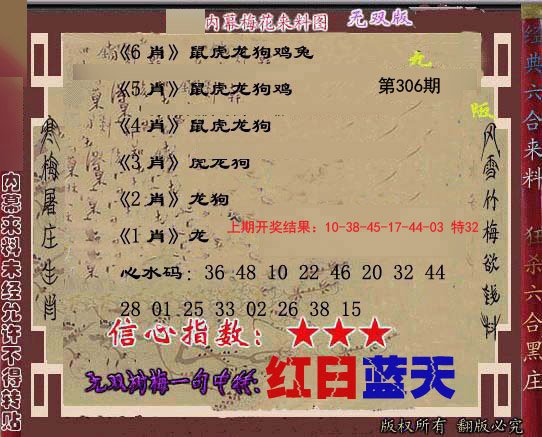 内幕梅花来料图 无双版
《6 肖》鼠虎龙狗鸡兔
《5 肖》鼠虎龙狗鸡
第306期
《4 肖》鼠虎龙狗
《3 肖》虎龙狗
《2 肖》龙狗
上期开奖结果：10-38-45-17-44-03 特32
《1 肖》龙
心水码： 36 48 10 22 46 20 32 44
28 01 25 33 02 26 38 15
信心指数：★★★
红日蓝天
版权所有 翻版必究
寒梅屠庄生肖
内幕来料未经允许不得转贴
风雪竹梅欲钱料
经典六合来料
狂杀六合黑庄